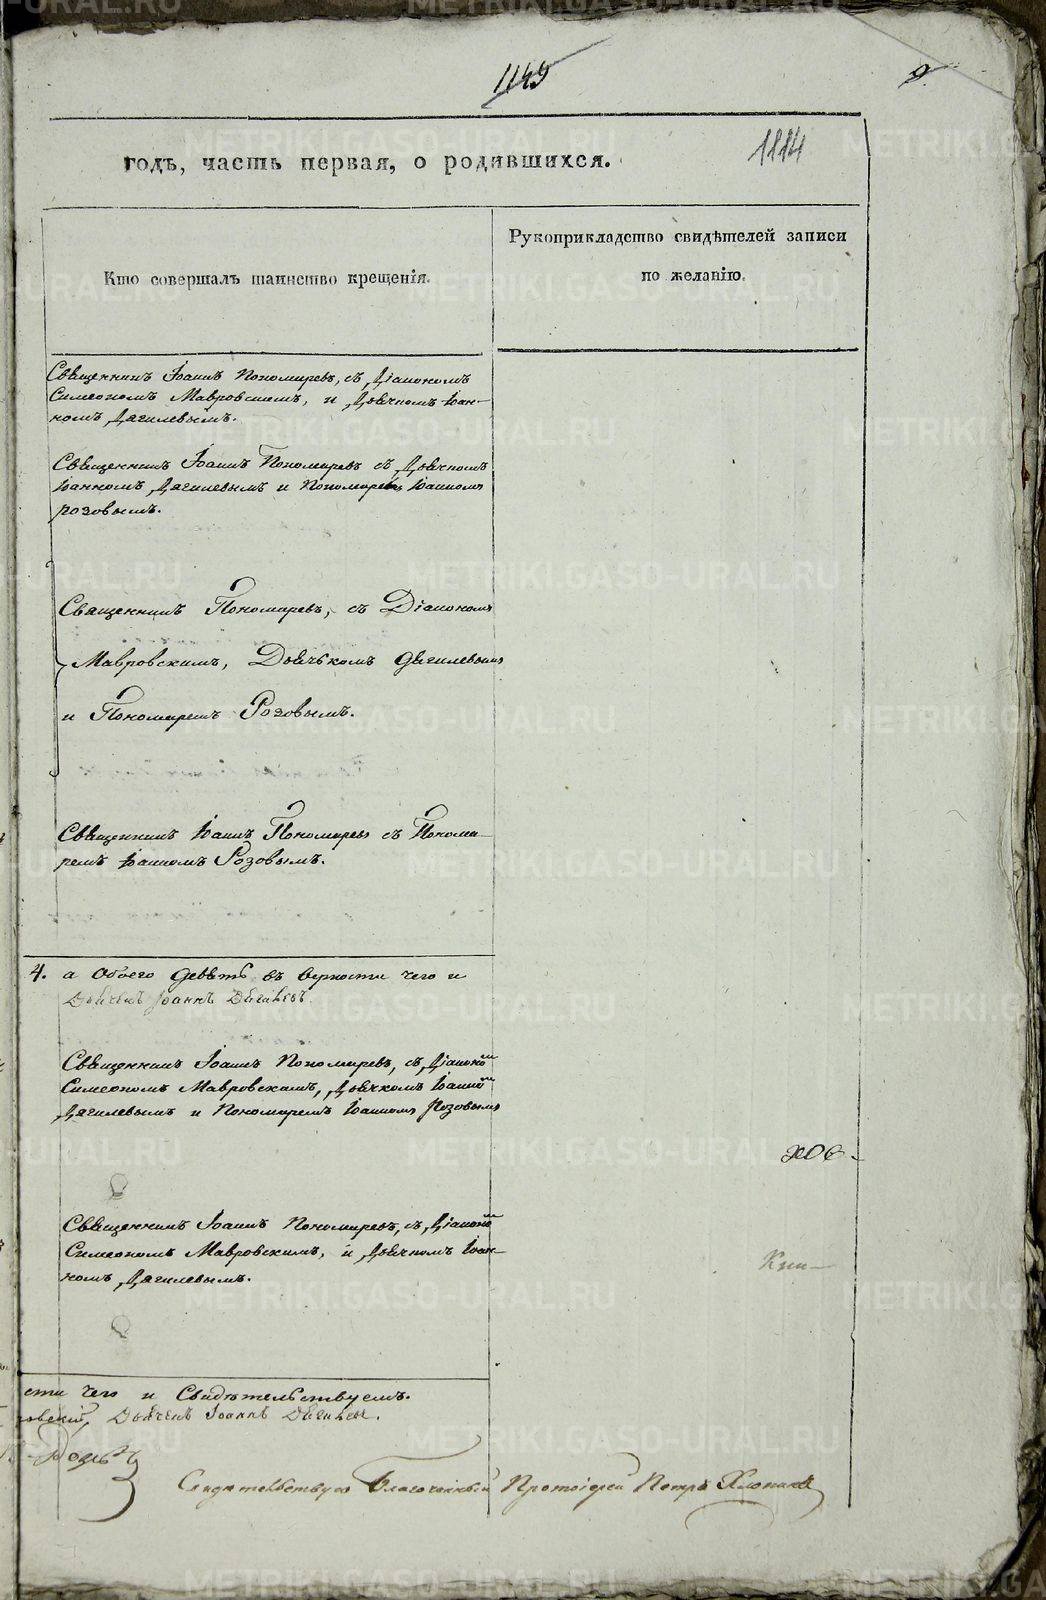 1149
9.
1114
годъ, часть первая, о родившихся.
Кто совершалъ таинство крещенія.
Рукоприкладство свидѣтелей записи
по желанію.
Священникъ Іоаннъ Пономаревъ, съ Діакономъ
Симеономъ Мавровскимъ, и Дьячкомъ Іоан-
номъ Дягилевымъ.
Священникъ Іоаннъ Пономаревъ съ Дьячкомъ
Іоанномъ Дягилевымъ и Пономаремъ Іоанномъ
Розовымъ.
Священникъ Пономаревъ, съ Діакономъ
Мавровскимъ, Дьячкомъ Дягилевымъ
и Пономаремъ Розовымъ.
Священникъ Іоаннъ Пономаревъ съ Понома-
ремъ Іоанномъ Розовымъ.
4. а обоего девять въ верности чего и
Дьячекъ Іоаннъ Дягилевъ.
Священникъ Іоаннъ Пономаревъ, съ Діакономъ
Симеономъ Мавровскимъ, Дьячкомъ Іоанномъ
Дягилевымъ и Пономаремъ Іоанномъ Розовымъ
Священникъ Іоаннъ Пономаревъ, съ Діакономъ
Симеономъ Мавровскимъ, и Дьячкомъ Іоан-
номъ Дягилевымъ.
сти чего и Свидѣтельствуемъ.
ровскій, Дьячекъ Іоаннъ Дягилевъ.
Свидѣтельствую Благочинный Протоіерей Петръ
METRIKI.GASO-URAL.RU